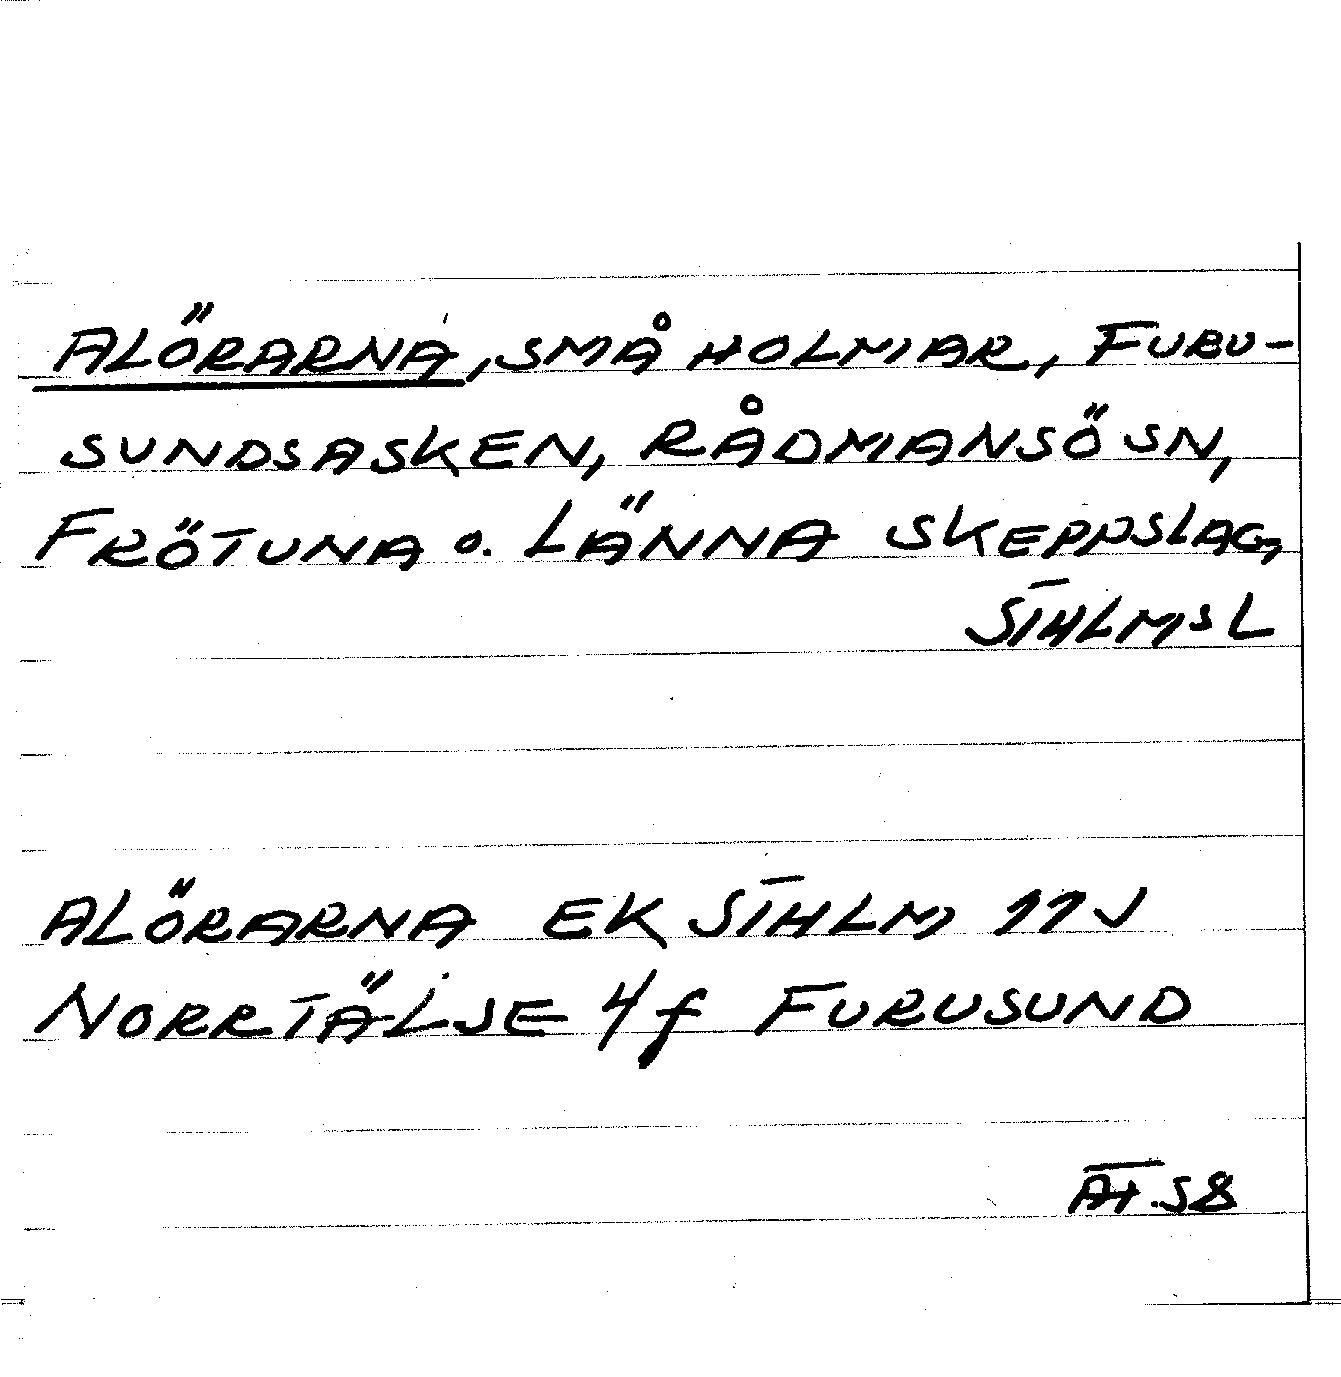 ALÖRARNA, SMÅ HOLMAR, FURU-
SUNDSASKEN, RÅDMANSÖ SN,
FRÖTUNA o. LÄNNA SKEPPSLAG,
STHLMS L
ALÖRARNA EK STHLM 11J
NORRTÄLJE 4f FURUSUND